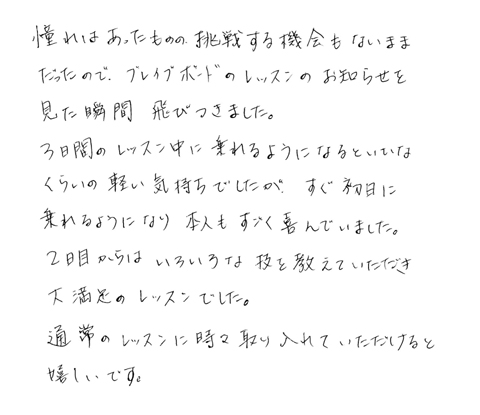 憧れはあったものの、挑戦する機会もないまま
だったので、ブレイブボードのレッスンのお知らせを
見た瞬間 飛びつきました。
3日間のレッスン中に乗れるようになるといいな
くらいの軽い気持ちでしたが、すぐ初日に
乗れるようになり 本人もすごく喜んでいました。
2日目からは いろいろな技を教えていただき
大満足のレッスンでした。
通常のレッスンに時々取り入れていただけると
嬉しいです。